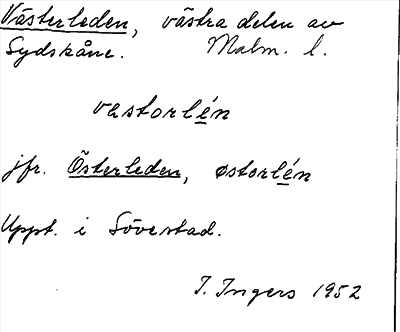 Västerleden, västra delen av
Sydskåne. Malm. l.
vastorlén
jfr. Österleden, østorlén
Uppt. i Sövestad.
I. Ingers 1952